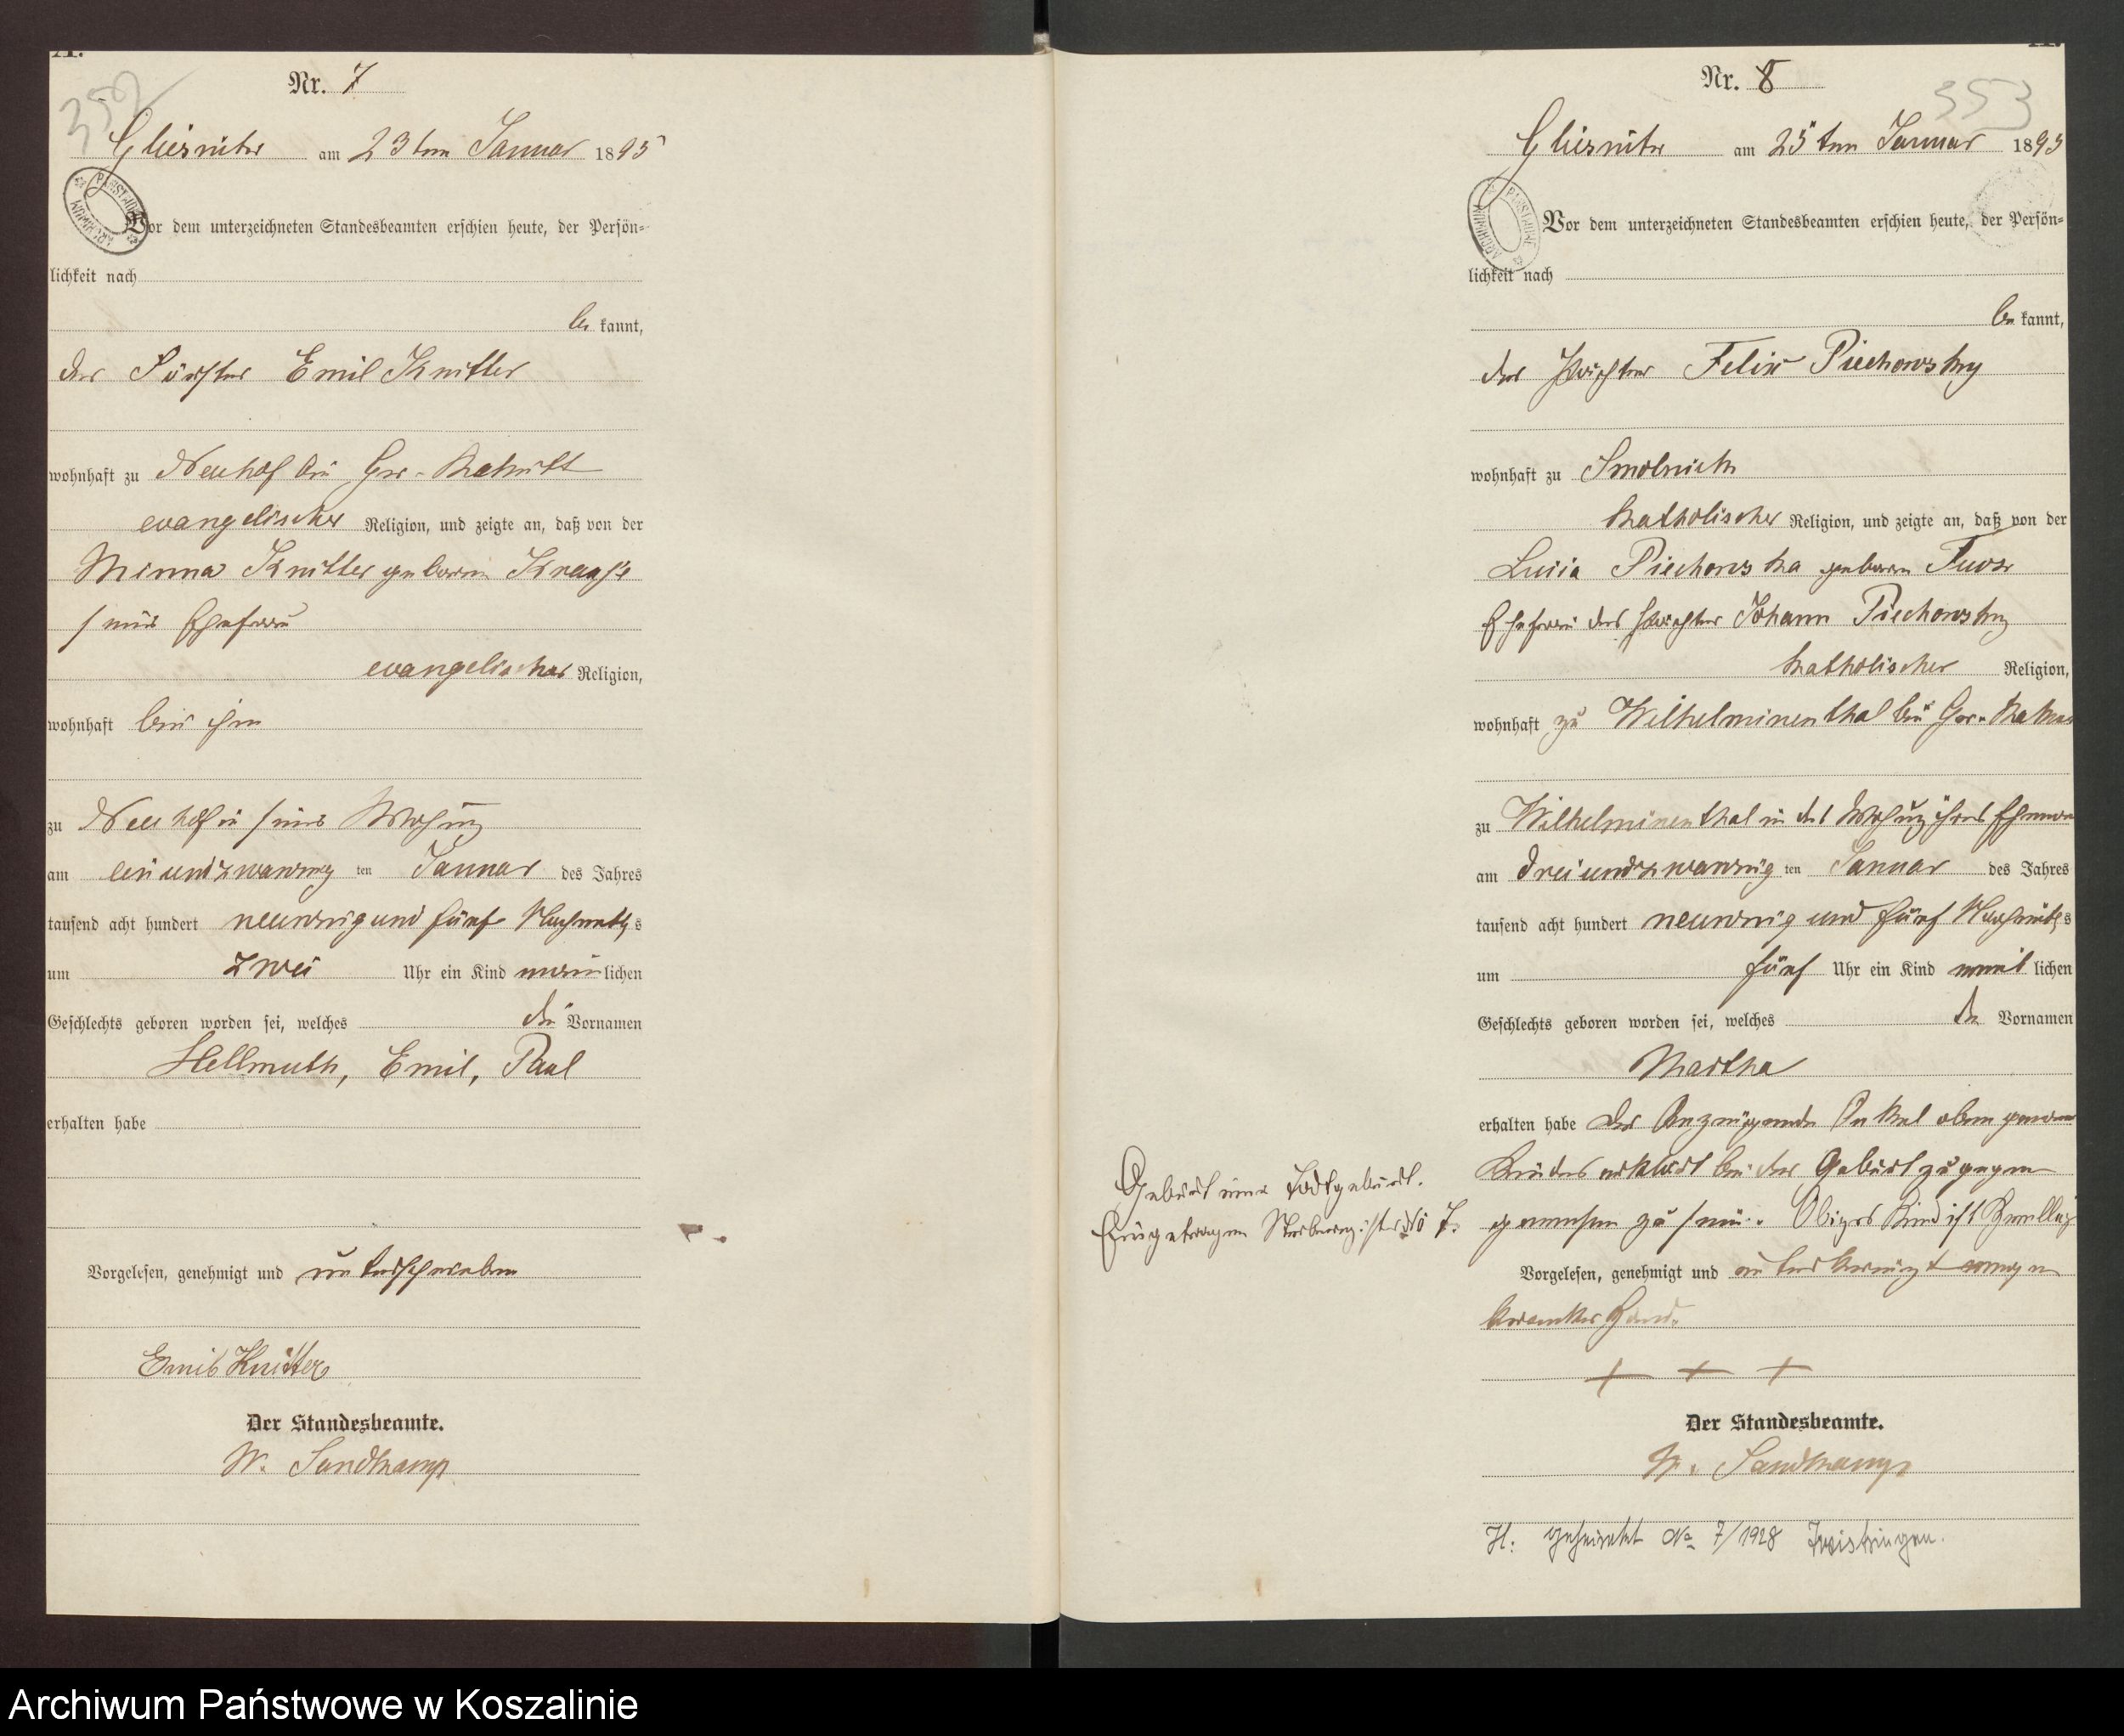 Nr. 7
352
Gliesnitz am 23ten Januar 1895
Vor dem unterzeichneten Standesbeamten erschien heute, der Persön=
lichkeit nach
be kannt,
der Förster Emil Knitter
wohnhaft zu Neuhof bei Gr.
evangelischer Religion, und zeigte an, daß von der
Minna Knitter geborene
seiner Ehefrau
evangelischer Religion,
wohnhaft bei ihm
zu Neuhof in seiner Wohnung
am einundzwanzig ten Januar des Jahres
tausend acht hundert neunzig und fünf Nachmittags
um zwei Uhr ein Kind männlichen
Geschlechts geboren worden sei, welches die Vornamen
Hellmuth, Emil, Paul
erhalten habe
Vorgelesen, genehmigt und unterschrieben
Emil Knitter
Der Standesbeamte.
W. Sandkamp
Nr. 8
353
Gliesnitz am 25ten Januar 1895
Vor dem unterzeichneten Standesbeamten erschien heute, der Persön=
lichkeit nach
be kannt,
der Pächter Felix Piechowsky
wohnhaft zu Smolnick
katholischer Religion, und zeigte an, daß von der
Lucia Piechowska geborene
Ehefrau des Pächters Johann Piechowsky
katholischer Religion,
wohnhaft zu Wilhelminenthal bei Gr.
zu Wilhelminenthal in der Wohnung ihres
am dreiundzwanzig ten Januar des Jahres
tausend acht hundert neunzig und fünf Nachmittags
um fünf Uhr ein Kind weib lichen
Geschlechts geboren worden sei, welches den Vornamen
Martha
erhalten habe Der Anzeigende Onkel oben
Kindes erklärt bei der Geburt zugegen
gewesen zu sein. Obiges Kind ist Zwilling
Geburt einer Todtgeburt.
Eingetragen No 7.
Vorgelesen, genehmigt und unterkreuzt wegen
kranker Hand.
+ + +
Der Standesbeamte.
W. Sandkamp
H: geheiratet No 7/1928 Twistringen.
Archiwum Państwowe w Koszalinie